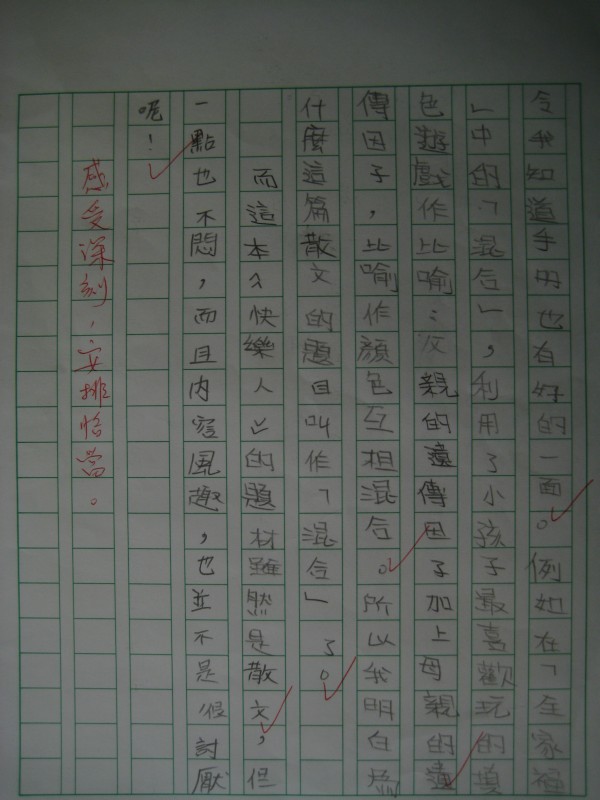 令我知道手冊也有好的一面。例如在「全家福
」中的「混合」，利用了小孩子最喜歡玩的填
色遊戲作比喻：父親的遺傳因子加上母親的遺
傳因子，比喻作顏色互相混合。所以我明白為
什麼這篇散文的題目叫作「混合」了。
而這本《快樂人》的題材雖然是散文，但
一點也不悶，而且內容風趣，也並不是很討厭
呢！
感受深刻，安排恰當。